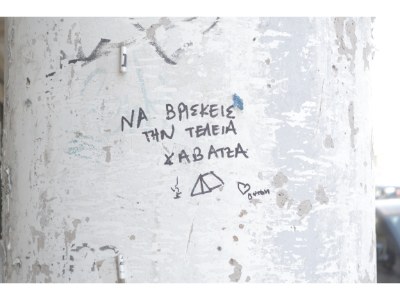 ΝΑ ΒΡΙΣΚΕΙΣ
ΤΗΝ ΤΕΛΕΙΑ
ΧΑΒΑΤΖΑ